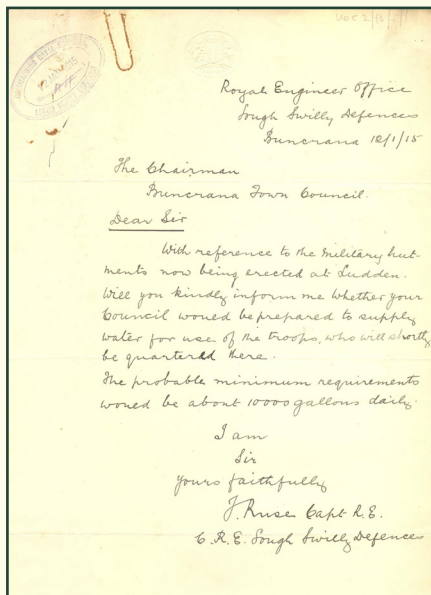 UDC 2/13
12 JAN 1915
Royal Engineer Office
Lough Swilly Defences
Buncrana 12/1/15
The Chairman
Buncrana Town Council.
Dear Sir
With reference to the Military hut-
ments now being erected at Ludden.
Will you kindly inform me whether your
Council would be prepared to supply
water for use of the troops, who will shortly
be quartered there.
The probable minimum requirements
would be about 10000 gallons daily.
I am
Sir
Yours faithfully
J. Ruse Capt R.E.
C.R.E. Lough Swilly Defences